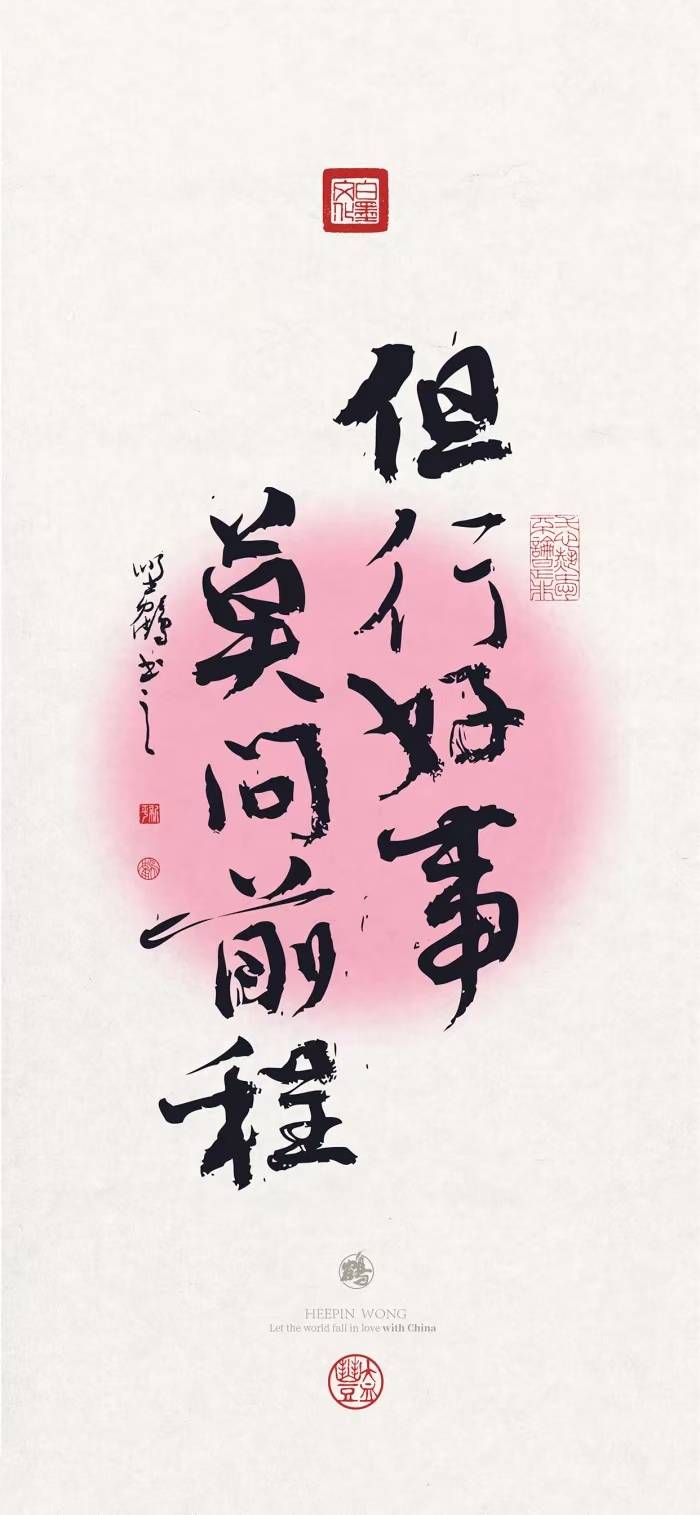 白墨文化
但行好事
莫问前程
鹤
HEEPIN WONG
Let the world fall in love with China